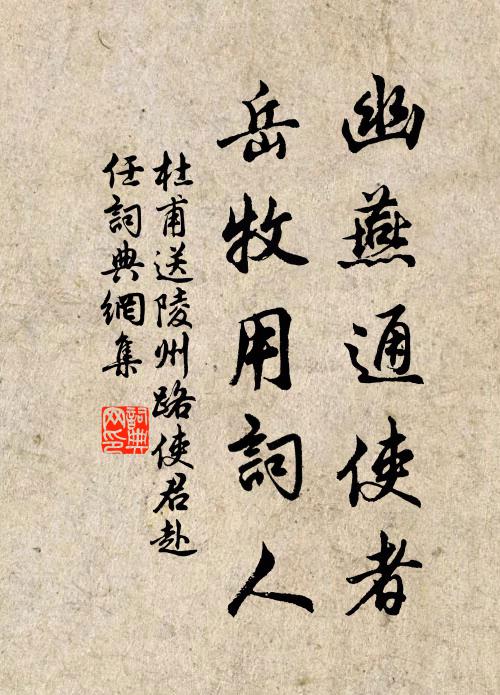 幽燕通使者
岳牧用詞人
杜甫送陵州路使君赴
任詞典網集
詞典
网印